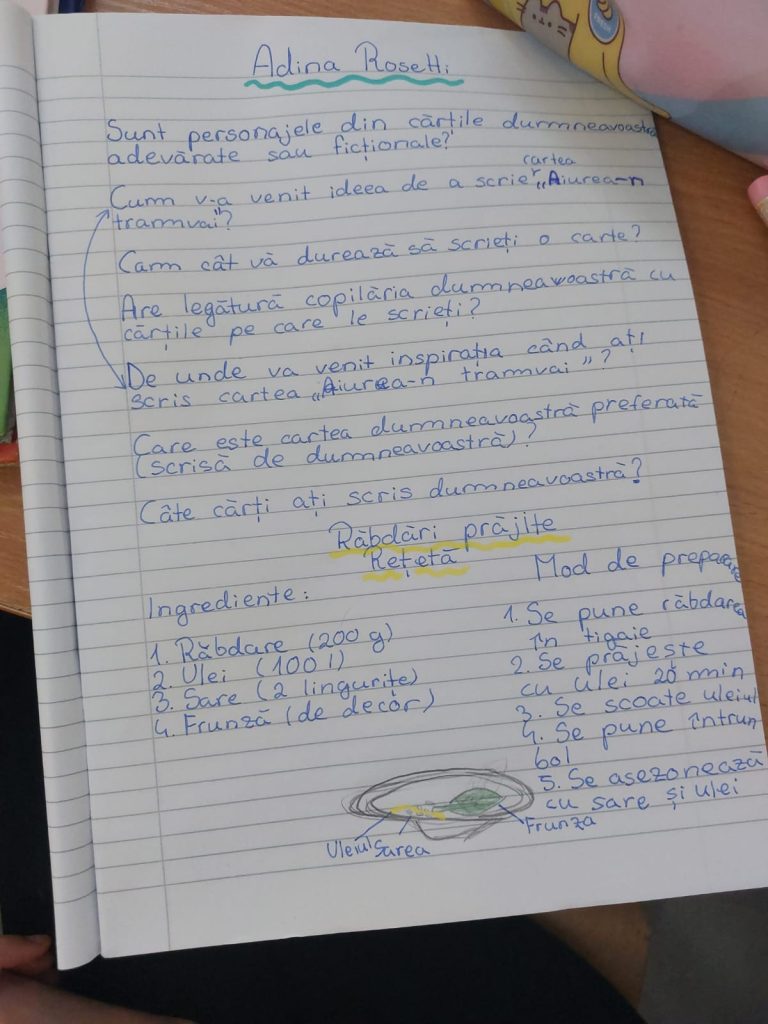 Adina Rosetti
Sunt personajele din cărțile dumneavoastră
adevărate sau ficționale?
Cum v-a venit ideea de a scrie cartea „Aiurea-n
tramvai"?
Cam cât vă durează să scrieți o carte?
Are legătură copilăria dumneavoastră cu
cărțile pe care le scrieți?
De unde va venit inspirația când ați
scris cartea „Aiurea-n tramvai"?
Care este cartea dumneavoastră preferată
(scrisă de dumneavoastră)?
Câte cărți ați scris dumneavoastră?
Răbdări prăjite
Rețetă
Ingrediente:
1. Răbdare (200 g)
2. Ulei (100 l)
3. Sare (2 lingurițe)
4. Frunză (de decor)
Mod de preparare
1. Se pune răbdarea
în tigaie
2. Se prăjește
cu ulei 20 min
3. Se scoate uleiul
4. Se pune întrun
bol
5. Se asezonează
cu sare și ulei
Uleiul
Sarea
Frunza